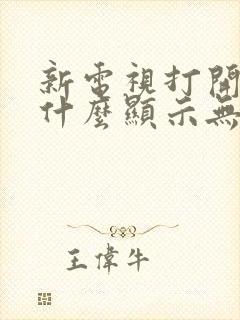 新電視打開
什麼顯示無
王偉牛